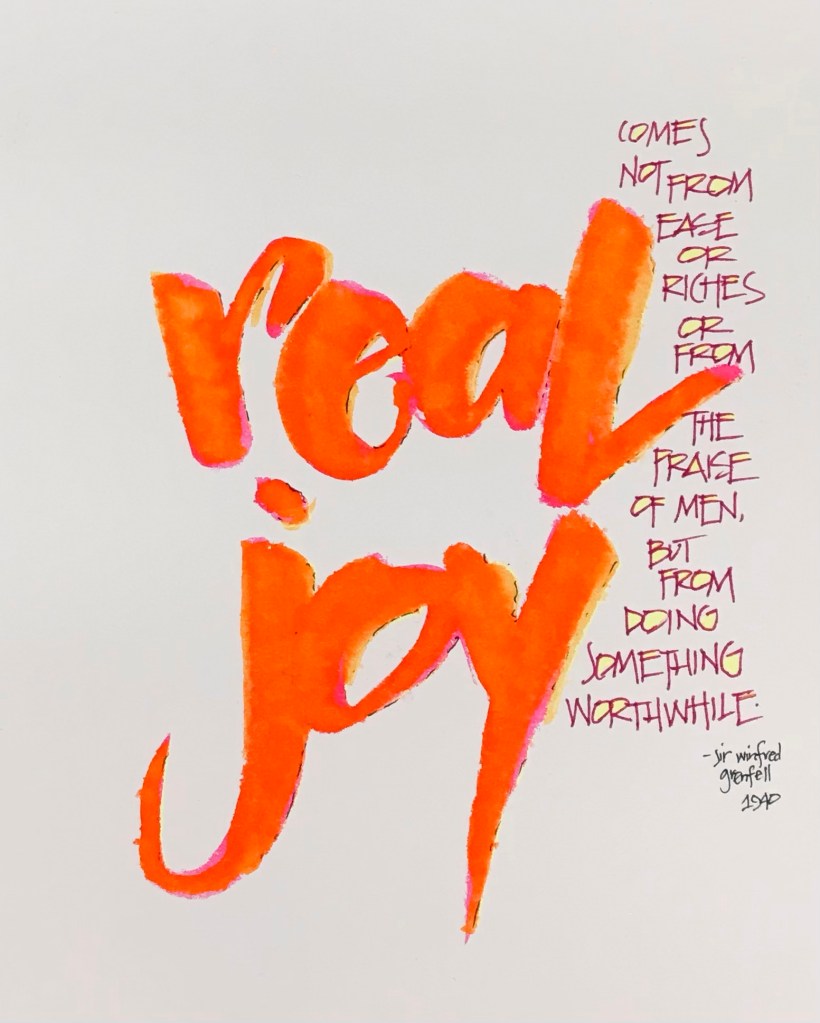 real
joy
COMES
NOT FROM
EASE
OR
RICHES
OR
FROM
THE
PRAISE
OF MEN,
BUT
FROM
DOING
SOMETHING
WORTHWHILE.
- sir winfred
grenfell
1940